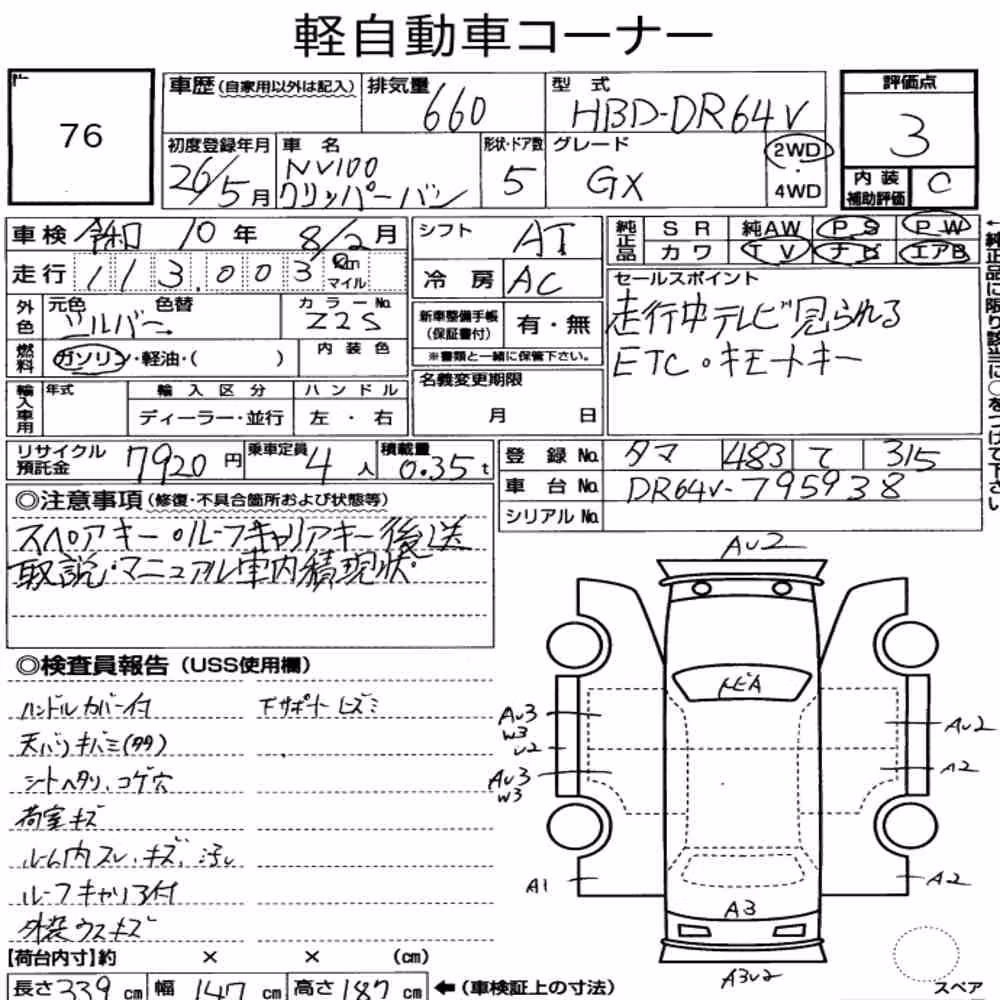 軽自動車コーナー
76
車歴 (自家用以外は記入)
排気量 660
型式 HBD-DR64V
評価点 3
初度登録年月 26/5月
車名 NV100 クリッパーバン
形状・ドア数 5
グレード GX
2WD・4WD
内装補助評価 C
車検 令和 10年 8/2月
走行 113.003 km マイル
シフト AT
冷房 AC
純正品 SR 純AW PS PW
カワ TV ナビ エアB
←純正品に限り該当に○をつけて下さい
外色 元色 シルバー 色替 カラーNo. Z2S
燃料 ガソリン・軽油・( ) 内装色
新車整備手帳(保証書付) 有・無
※書類と一緒に保管下さい。
セールスポイント
走行中テレビ見られる
ETC・キモートキー
輸入車用 年式 輸入区分 ハンドル
ディーラー・並行 左・右
名義変更期限
月 日
リサイクル預託金 7920円 乗車定員 4人 積載量 0.35t
登録No. タマ 483 て 315
車台No. DR64V-795938
シリアルNo.
◎注意事項 (修復・不具合箇所および状態等)
スペアキー・ルーフキャリアキー後送
取説・マニュアル車内積現状
◎検査員報告 (USS使用欄)
ハンドルカバー付 下サポートヒズミ
天バリキバミ(多)
シートヘタリ、コゲ穴
荷室キズ
ルーム内スレ、キズ、汚レ
ルーフキャリア付
外装ウスキズ
【荷台内寸】約 × × (cm)
長さ 339 cm 幅 147 cm 高さ 187 cm ←(車検証上の寸法)
AU2
トビA
AU3
W3
U2
AU3
W3
A1
AU2
A2
A2
A3
A3U2
スペア